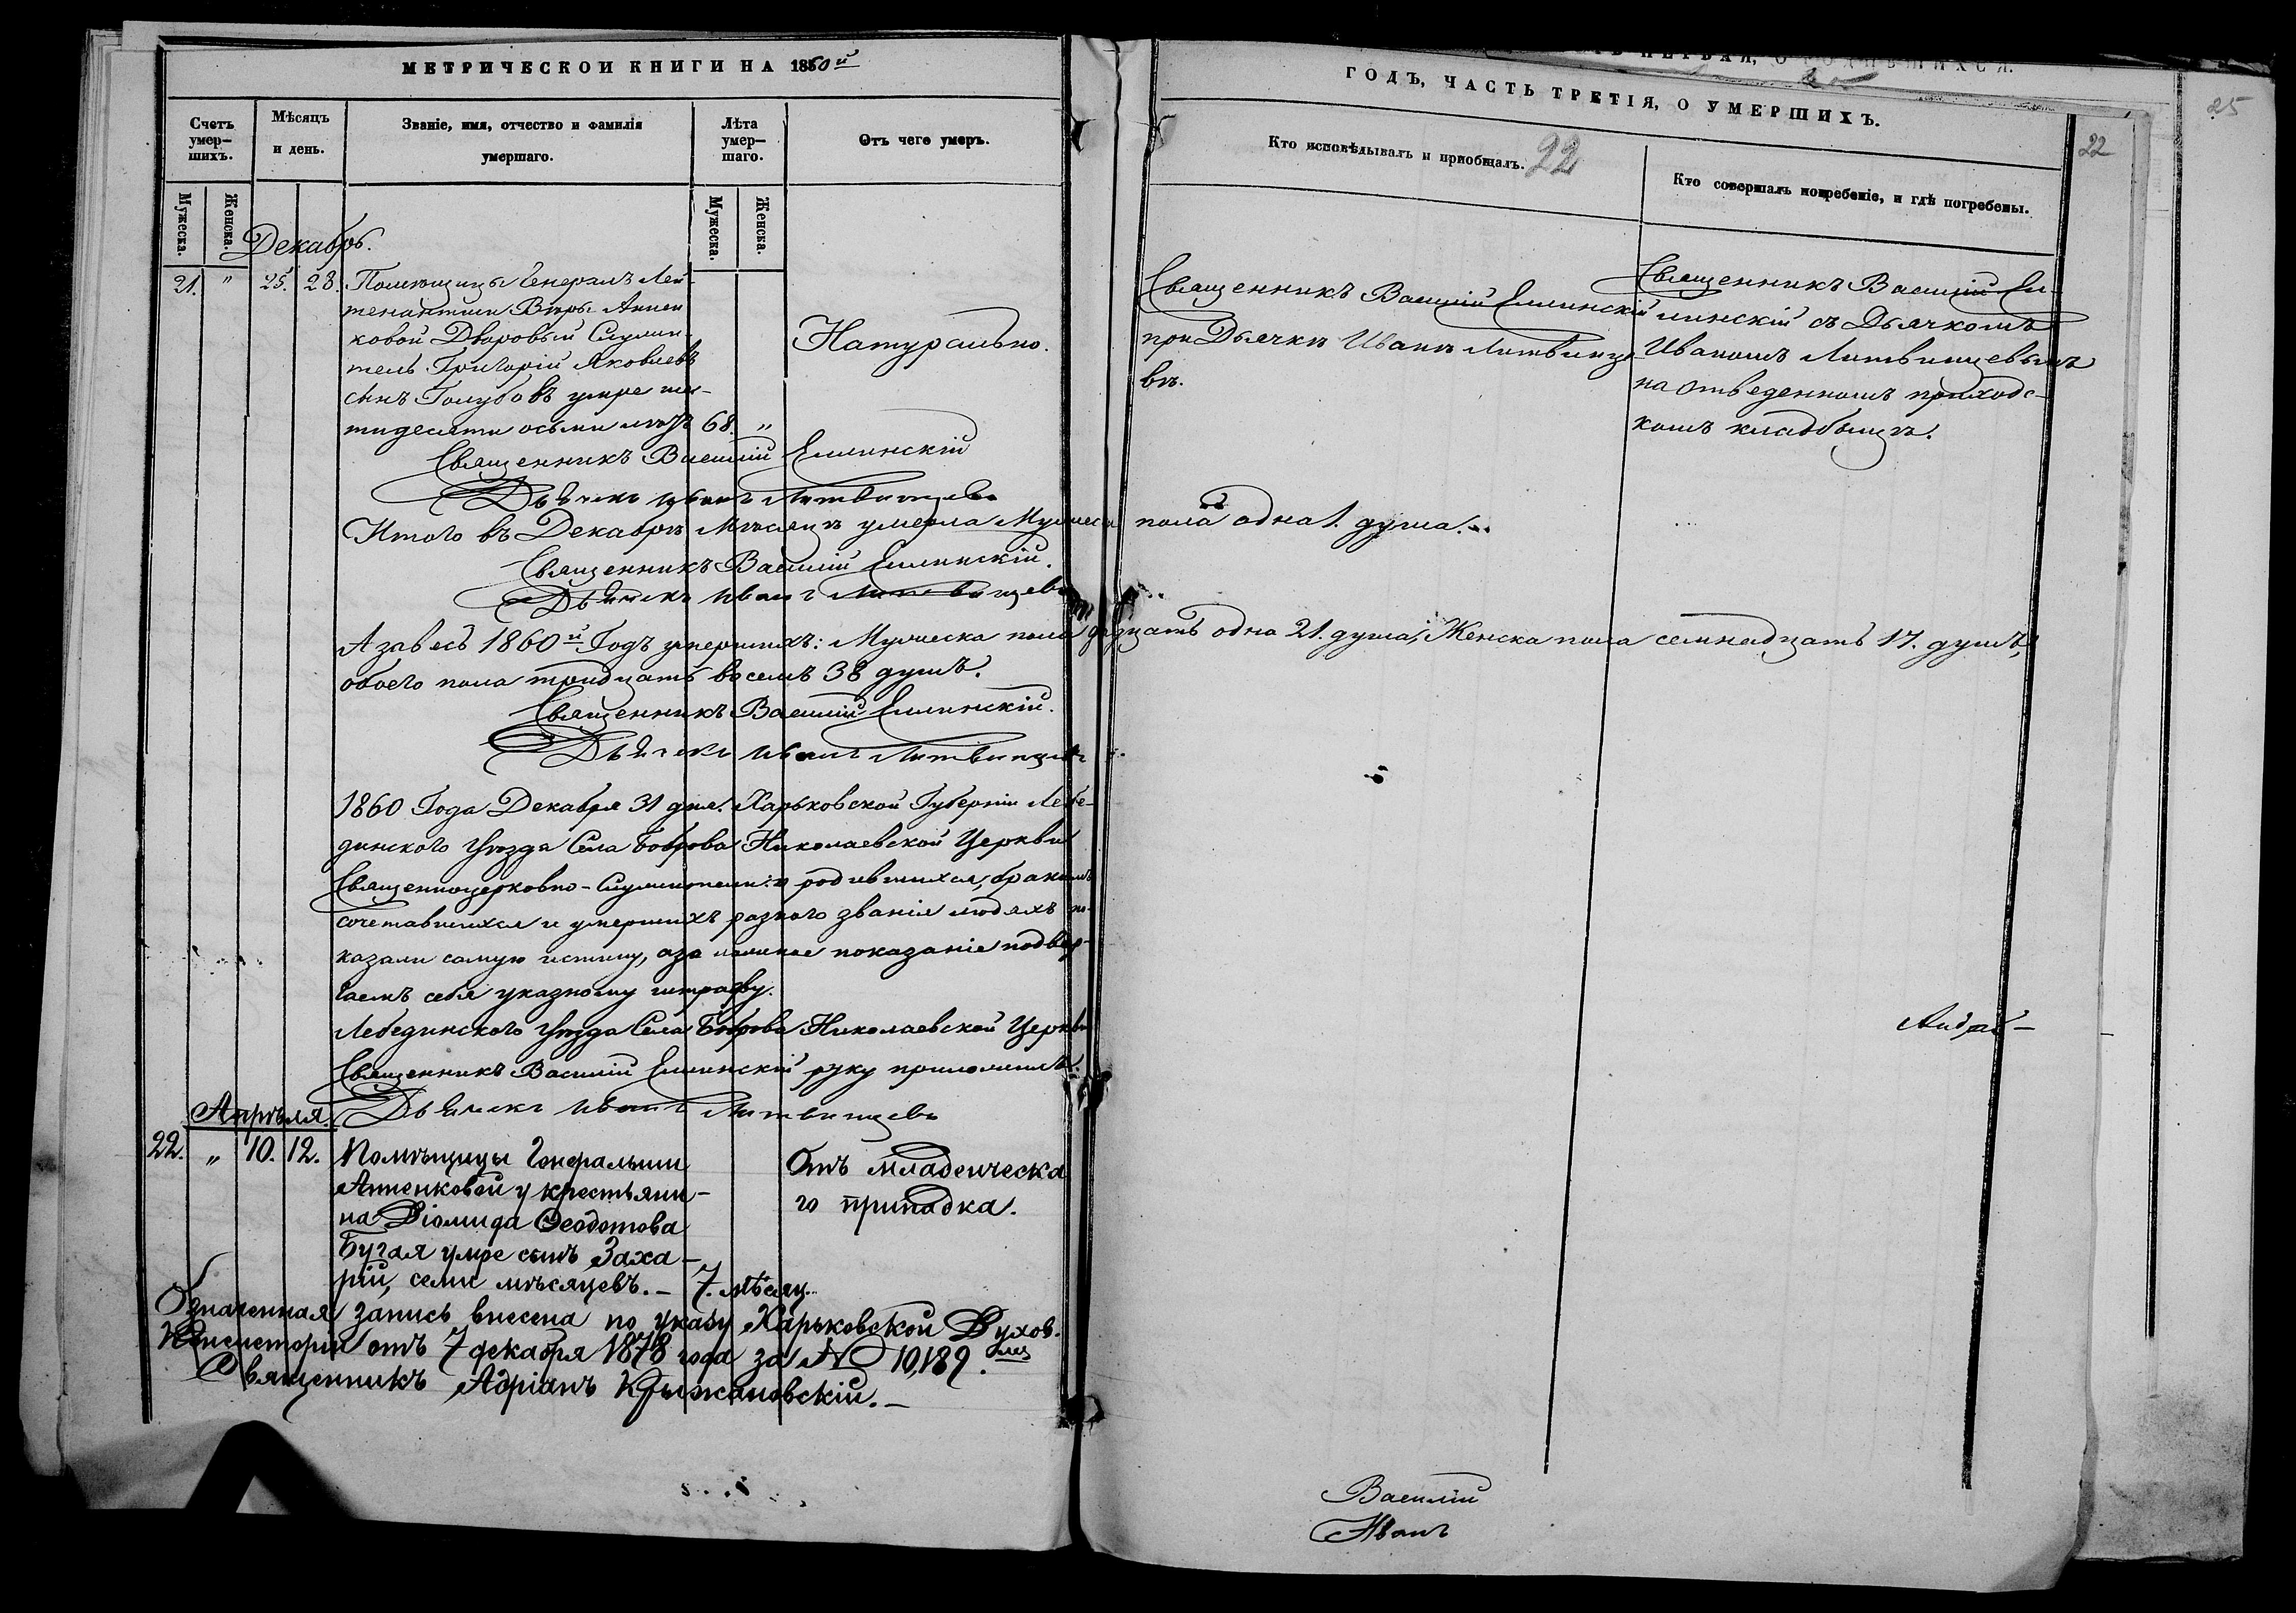 МЕТРИЧЕСКОЙ КНИГИ НА 1860й
Счетъ умер-шихъ.
Мѣсяцъ и день.
Званіе, имя, отчество и фамилія умершаго.
Лѣта умер-шаго.
Отъ чего умеръ.
Мужеска.
Женска.
Мужеска.
Женска.
Декабрь.
21. " 25. 28. Помѣщицы Генералъ Лей-
тенантши Вѣры Аннен
ковой Дворовый Служи-
тель Григорій Яковлевъ
сынъ Голубовъ умре шес-
тидесяти осьми лѣтъ 68. "
Натурально.
Священникъ Василій Еллинскій
Дьячекъ Иванъ Литвинцевъ
Итого въ Декабрѣ Мѣсяцѣ умерла Мужеска пола одна 1. душа.
Священникъ Василій Еллинскій.
Дьячекъ Иванъ Литвинцевъ
А за весь 1860й Годъ умершихъ: Мужеска пола двадцать одна 21. душа, Женска пола семнадцать 17. душъ,
обоего пола тридцать восемъ 38 душъ.
Священникъ Василій Еллинскій.
Дьячекъ Иванъ Литвинцевъ
1860 Года Декабря 31 дня. Харьковской Губерніи Лебе-
динского Уѣзда Села Боброва Николаевской Церкви
Священноцерковно-Служители: о родившихся, бракомъ
сочетавшихся и умершихъ разного званія людяхъ по-
казали самую истину, а за ложное показаніе подвер-
гаемъ себя указному штрафу.
Лебединского Уѣзда Села Боброва Николаевской Церкви
Священникъ Василій Еллинскій руку приложилъ.
Дьячекъ Иванъ Литвинцевъ
Апрѣля.
22. " 10. 12. Помѣщицы Генеральши
Анненковой у крестьяни-
на Діомида Ѳеодотова
Бугая умре сынъ Заха-
рій, семи мѣсяцевъ.- 7. мѣсяц.
Отъ младенческа
го припадка.
Означенная запись внесена по указу Харьковской Духов.
Консисторіи отъ 7 декабря 1878 года за № 10,189.
Священникъ Адріанъ Крыжановскій.-
ГОДЪ, ЧАСТЬ ТРЕТІЯ, О УМЕРШИХЪ.
Кто исповѣдывалъ и пріобщалъ.
22
Кто совершалъ погребеніе, и гдѣ погребены.
22
25
Священникъ Василій Еллинскій
при Дьячкѣ Иванѣ Литвинце
вѣ.
Священникъ Василій Ел-
линскій съ Дьячкомъ
Иваномъ Литвинцевымъ
на отведенномъ приходс-
комъ кладбыщѣ.
Василій
Иванъ